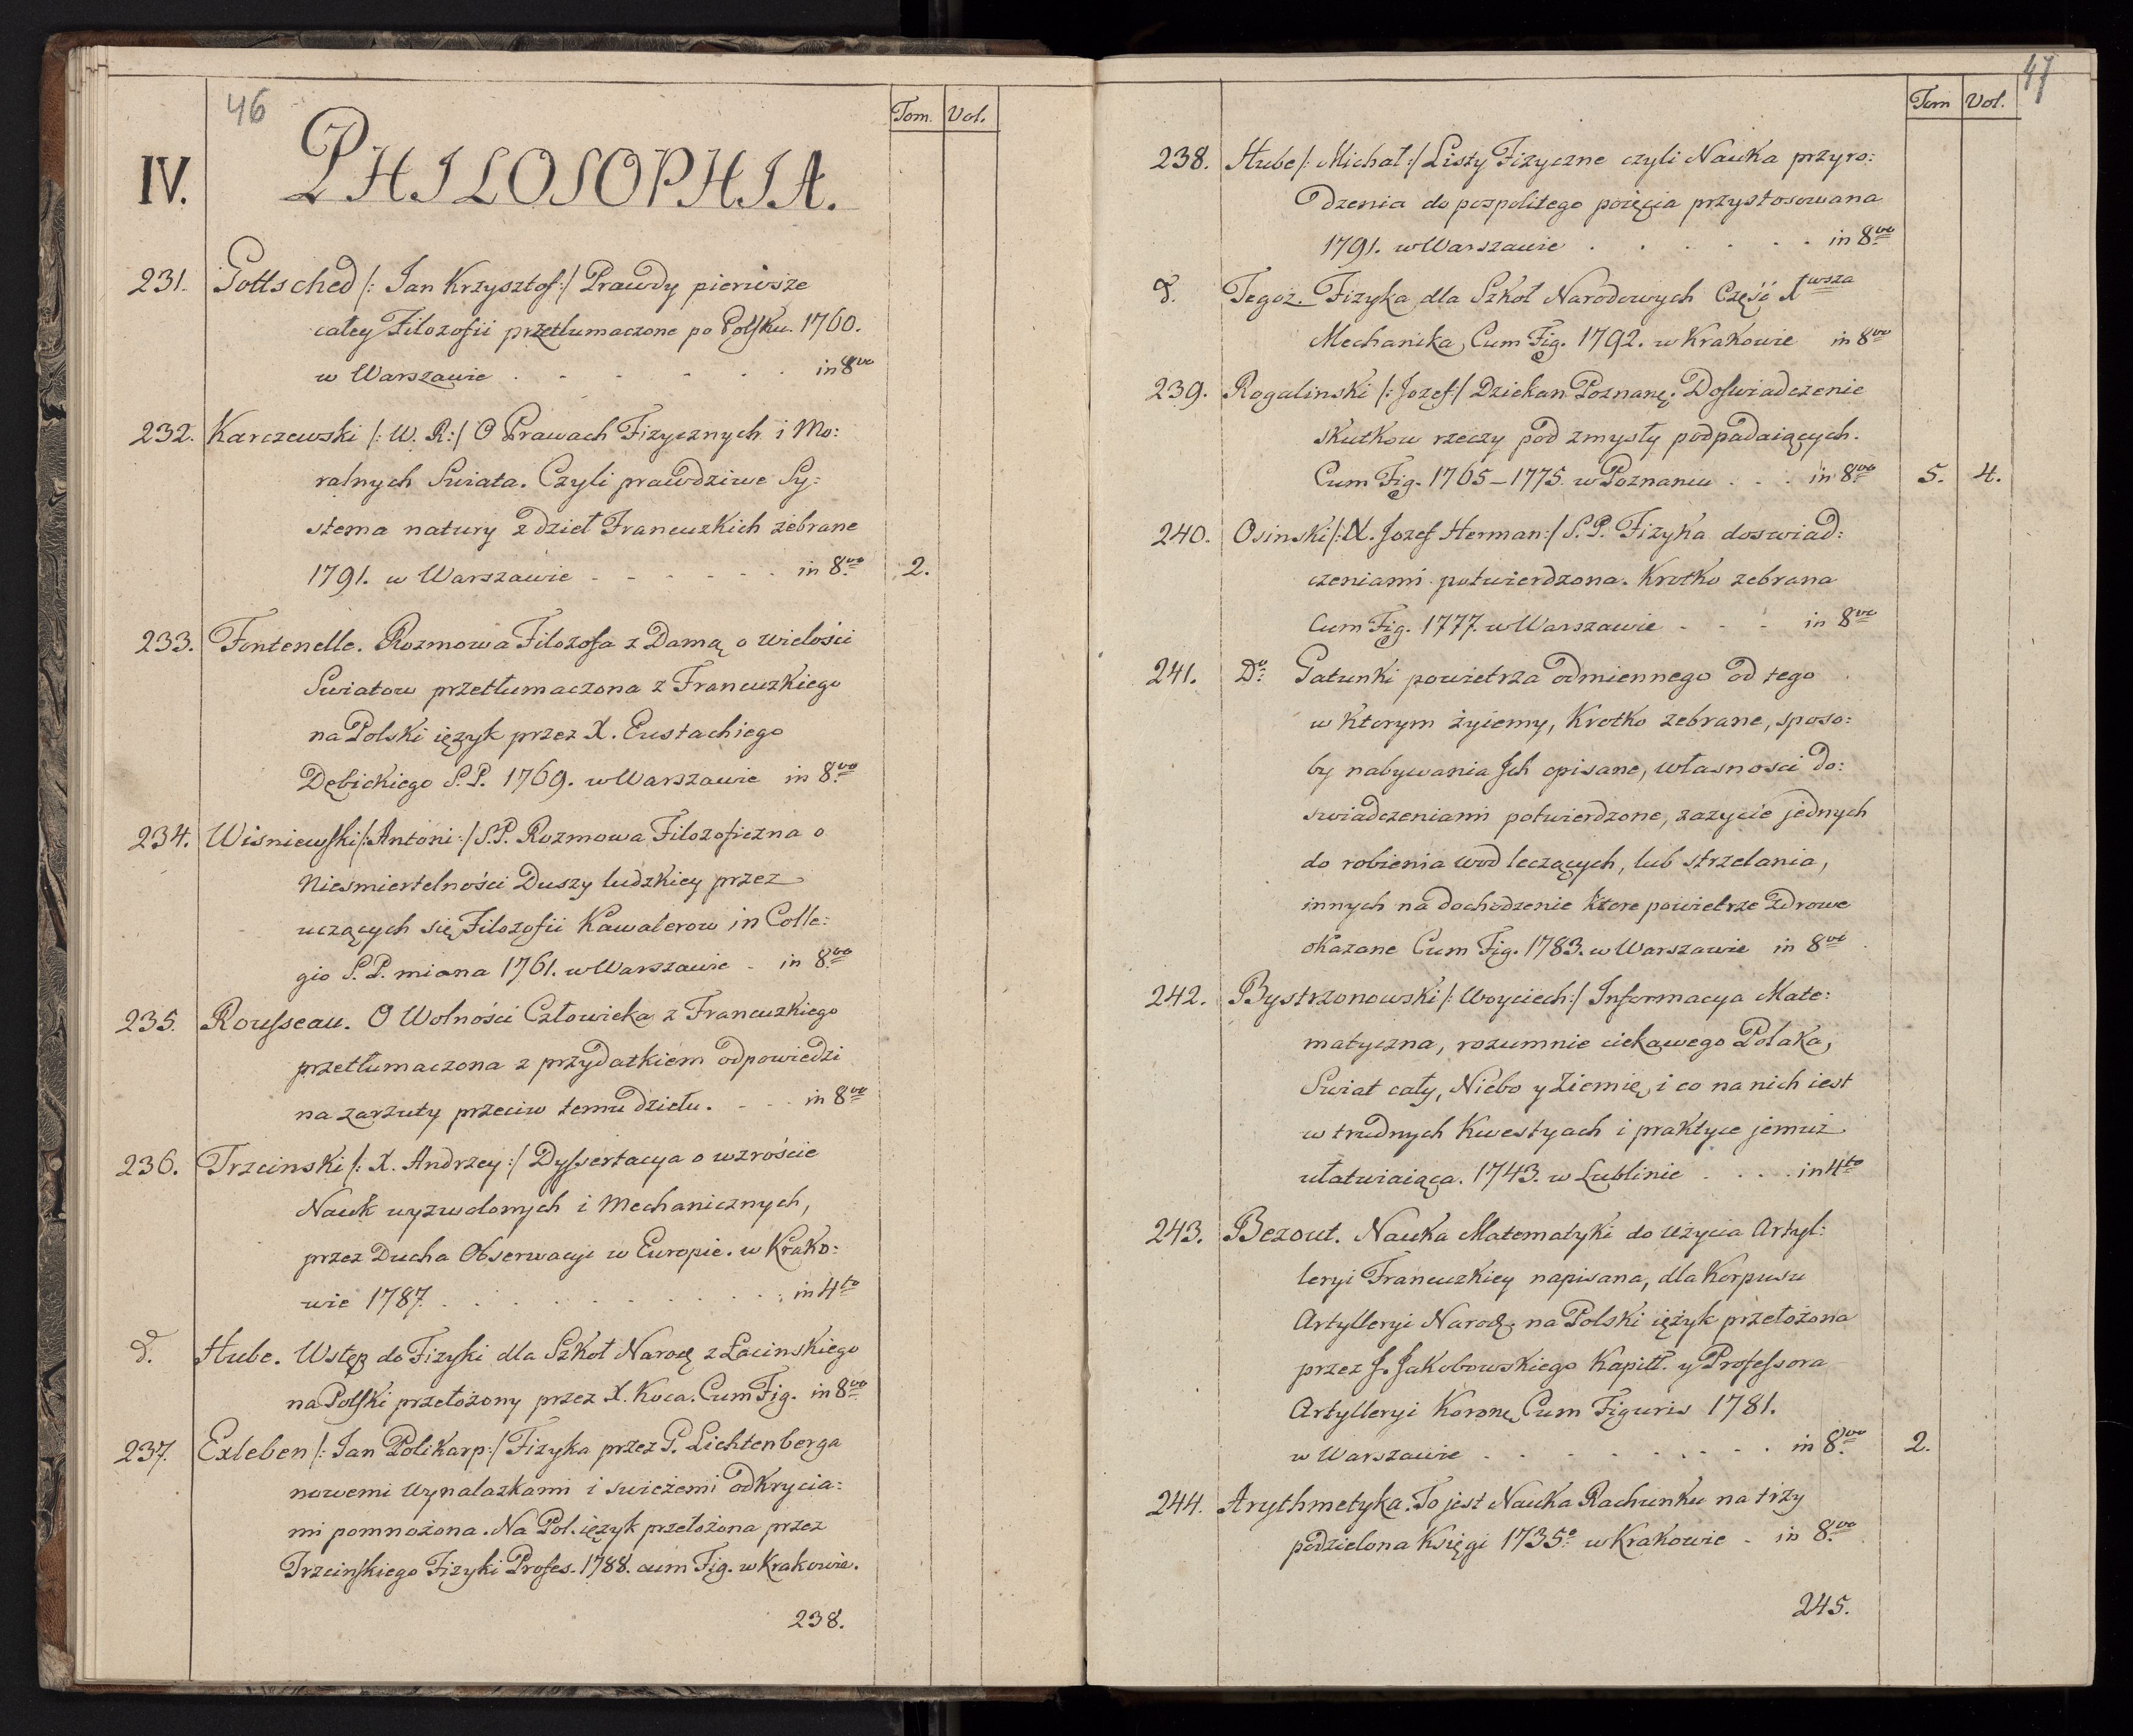 46
Tom. Vol.
IV. PHILOSOPHIA.
231. Gottsched /: Jan Krzysztof :/ Prawdy pierwsze
całey Filozofii przetłumaczone po Polsku. 1760.
w Warszawie . . . . . . in 8vo
232. Karczewski /: W. R :/ O Prawach Fizycznych i Mo:
ralnych Swiata. Czyli prawdziwe Sy:
stema natury z dzieł Francuzkich zebrane
1791. w Warszawie . . . . . . in 8vo 2.
233. Fontenelle. Rozmowa Filozofa z Damą o wielości
Swiatow przetłumaczona z Francuzkiego
na Polski ięzyk przez X. Eustachiego
Dębickiego S. P. 1769. w Warszawie in 8vo
234. Wisniewski /: Antoni :/ S. P. Rozmowa Filozoficzna o
Niesmiertelności Duszy ludzkiey przez
uczących się Filozofii Kawalerow in Colle:
gio S. P. miana 1761. w Warszawie . in 8vo
235. Rousseau. O Wolności Człowieka z Francuzkiego
przetłumaczona z przydatkiem odpowiedzi
na zarzuty przeciw temu dziełu. . . . in 8vo
236. Trzcinski /: X. Andrzey :/ Dyssertacya o wzroście
Nauk wyzwolonych i Mechanicznych,
przez Ducha Obserwacyi w Europie. w Krako:
wie 1787. . . . . . . . . . in 4to
d. Hube. Wstęp do Fizyki dla Szkoł Narod z Łacinskiego
na Polski przełożony przez X. Koca. Cum Fig. in 8vo
237. Exleben /: Jan Polikarp :/ Fizyka przez P. Lichtenberga
nowemi wynalazkami i swieżemi odkrycia:
mi pomnożona. Na Pol. ięzyk przełożona przez
Trzcinskiego Fizyki Profes. 1788. cum Fig. w Krakowie.
238.
47
Tom Vol.
238. Hube /: Michał :/ Listy Fizyczne czyli Nauka przyro:
dzenia do pospolitego poięcia przystosowana
1791. w Warszawie . . . . . . in 8vo
d. Tegoż. Fizyka dla Szkoł Narodowych Część 1wsza
Mechanika, Cum Fig. 1792. w Krakowie in 8vo
239. Rogalinski /: Jozef :/ Dziekan Poznanę. Doswiadczenie
skutkow rzeczy pod zmysły podpadaiących.
Cum Fig. 1765–1775. w Poznaniu . . . in 8vo 5. 4.
240. Osinski /: X. Jozef Herman :/ S. P. Fizyka doswiad:
czeniami potwierdzona. Krotko zebrana
Cum Fig. 1777. w Warszawie . . . in 8vo
241. Do. Gatunki powietrza odmiennego od tego
w ktorym żyiemy, Krotko zebrane, sposo:
by nabywania Jch opisane, własnosci do:
swiadczeniami potwierdzone, zazycie jednych
do robienia wod leczących, lub strzelania,
innych na dochodzenie ktore powietrze zdrowe
okazane Cum Fig. 1783. w Warszawie in 8vo
242. Bystrzonowski /: Woyciech :/ Informacya Mate:
matyczna, rozumnie ciekawego Polaka,
Swiat cały, Niebo y Ziemię, i co na nich iest
w trudnych Kwestyach i praktyce jemuż
ułatwiaiąca. 1743. w Lublinie . . . . in 4to
243. Bezout. Nauka Matematyki do użycia Artyl:
leryi Francuzkiey napisana, dla Korpusu
Artylleryi Narod. na Polski ięzyk przełożona
przez J. Jakobowskiego Kapitt. y Professora
Artylleryi Koronę, Cum Figuris 1781.
w Warszawie . . . . . . . . in 8vo 2.
244. Arythmetyka. To jest Nauka Rachunku na trzy
podzielona Księgi 1735o w Krakowie . in 8vo
245.